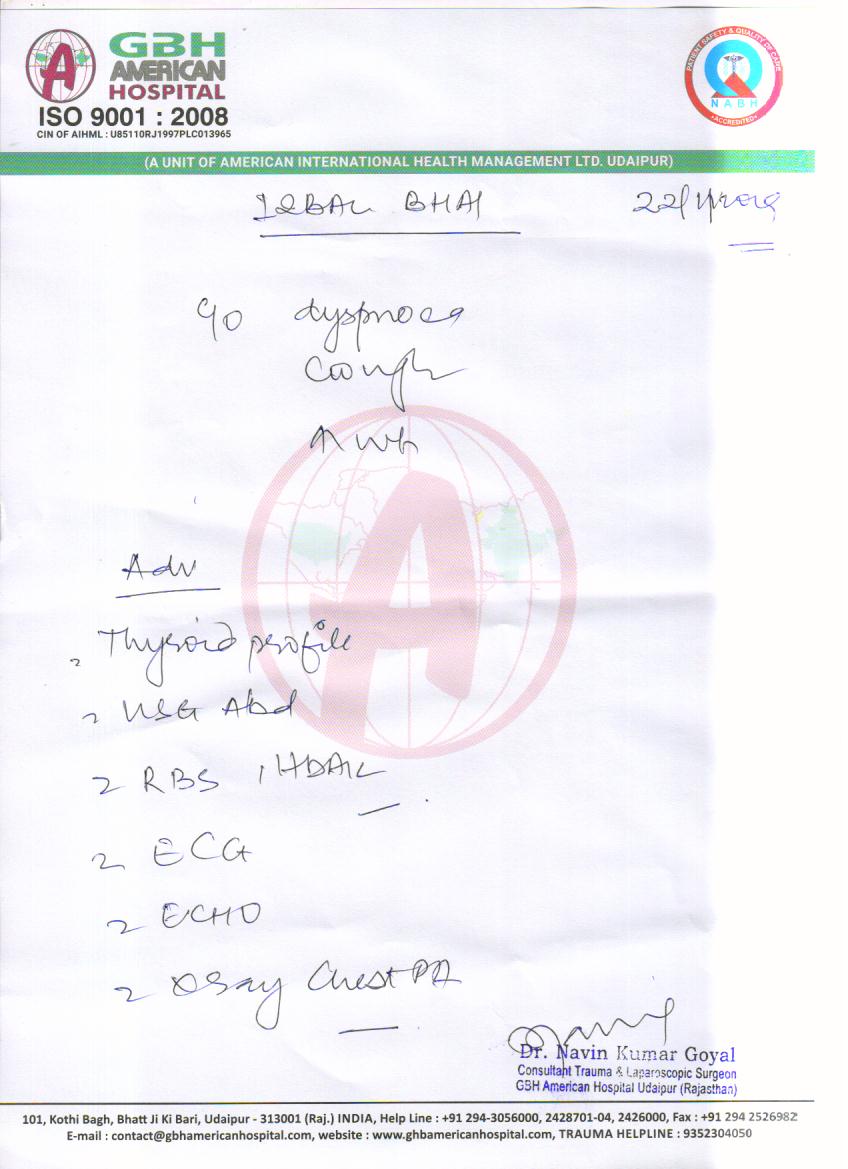 GBH
AMERICAN
HOSPITAL
ISO 9001 : 2008
CIN OF AIHML : U85110RJ1997PLC013965
PATIENT SAFETY & QUALITY OF CARE
NABH
ACCREDITED
(A UNIT OF AMERICAN INTERNATIONAL HEALTH MANAGEMENT LTD. UDAIPUR)
IQBAL BHAI
C/O dyspnoea
Cough
↑ wt
Adv
Thyroid profile
USG Abd
RBS , HbA1c
ECG
ECHO
Xray Chest PA
Dr. Navin Kumar Goyal
Consultant Trauma & Laparoscopic Surgeon
GBH American Hospital Udaipur (Rajasthan)
101, Kothi Bagh, Bhatt Ji Ki Bari, Udaipur - 313001 (Raj.) INDIA, Help Line : +91 294-3056000, 2428701-04, 2426000, Fax : +91 294 2526982
E-mail : contact@gbhamericanhospital.com, website : www.ghbamericanhospital.com, TRAUMA HELPLINE : 9352304050